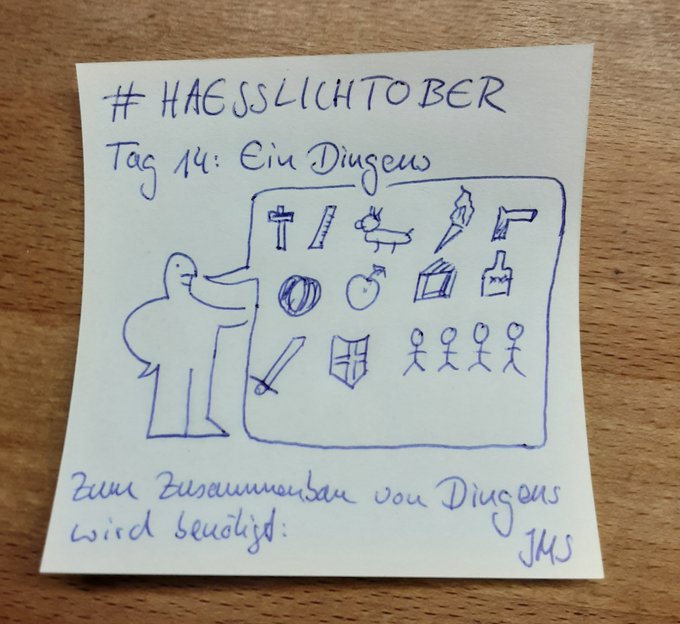 # HAESSLICHTOBER
Tag 14: Ein Dingens
Zum Zusammenbau von Dingens
wird benötigt:
JMS